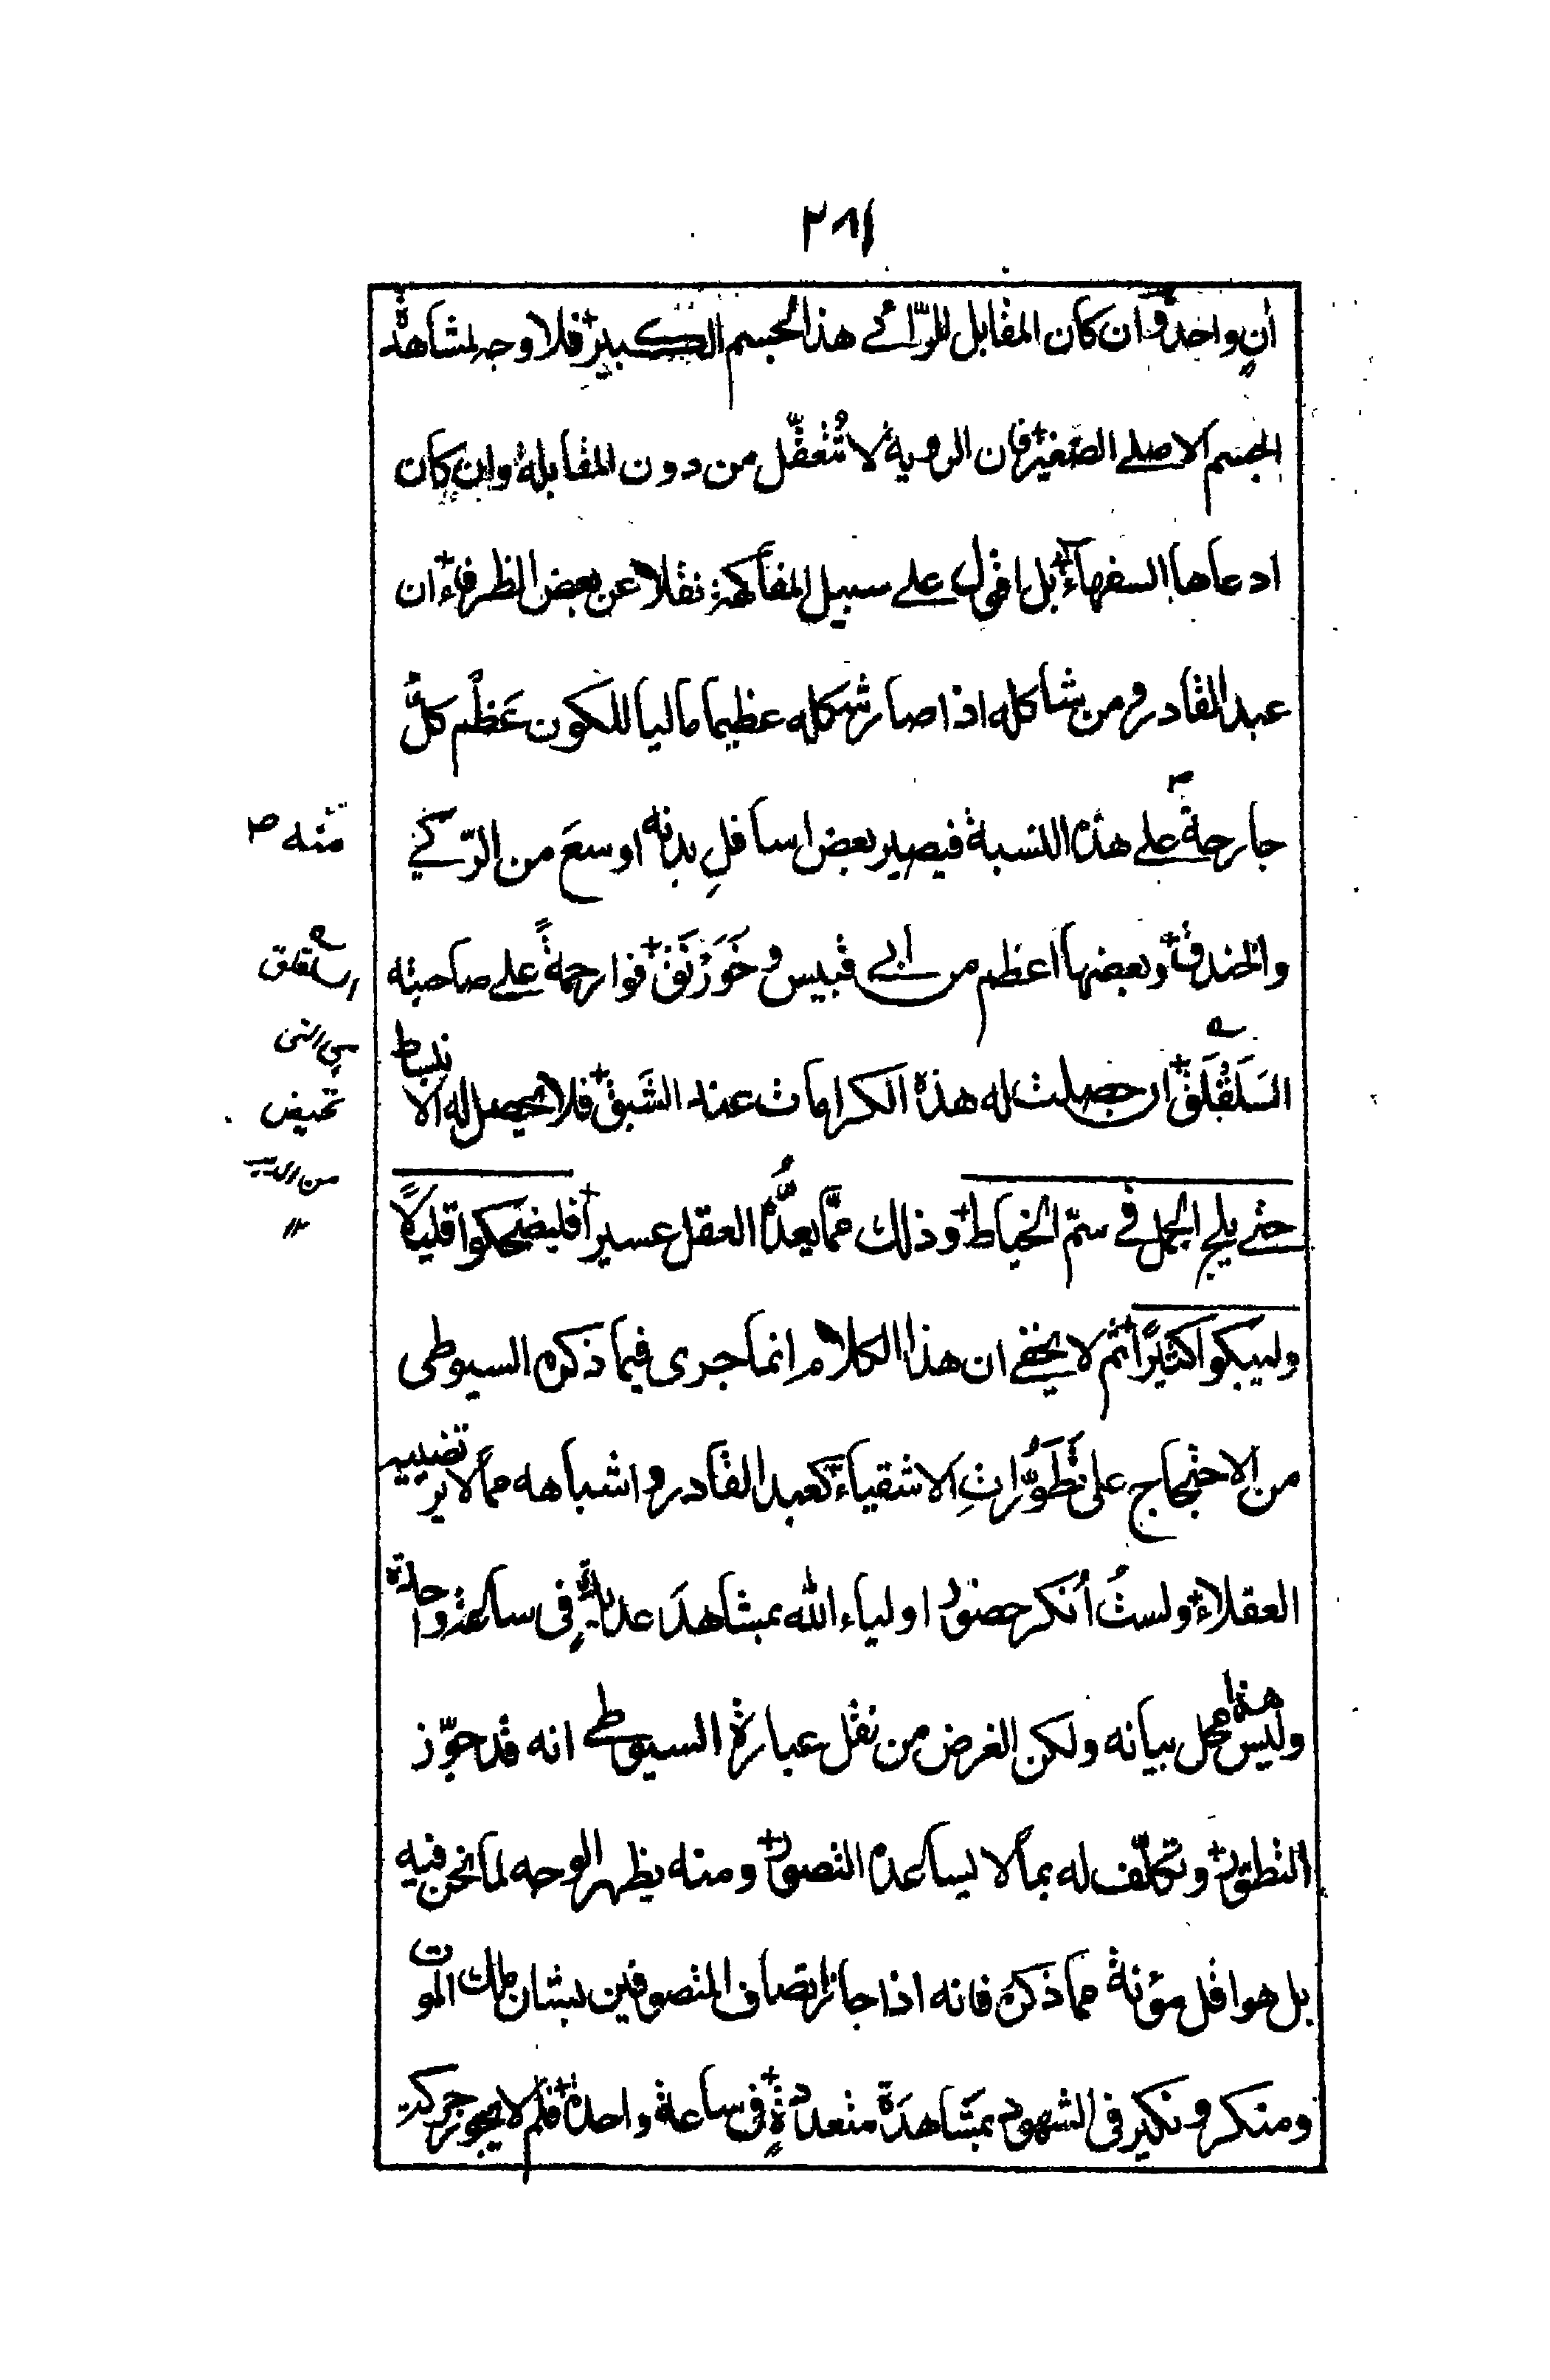 ٢٨١
أنٍ واحد وان كان المقابل للرّائے هذا الجسم الكبير فلا وجه لمشاهدة
الجسم الاصلے الصغير فان الروية لا تُتعقّل من دون المقابلة وان كان
ادعاها السفهاء بل اقول علے سبيل المفاكهة نقلا عن بعض الظرفاء ان
عبد القادر ومن شاكله اذا صار شكله عظيما ماليا للكون عَظُم كلُّ
جارحةً علے هذه النسبة فيصير بعض اسافلِ بدنه اوسعَ من الرّكے
منه
والخندق وبعضها اعظم من أبے قبيس وخَوَرْنَق فوا رحمةً علے صاحبته
السلقلق
السَلَقْلَق ان حصلت له هذه الكرامات عند الشَبق فلا يحصل له الانبساط
هي التى
تحيض
حتے يلج الجمل فے سمّ الخياط وذلك ممّا يعدُّه العقل عسيراً فليضحكوا قليلاً
من الدبر
١٢
وليبكوا كثيراً ثم لا يخفے ان هذا الكلام انما جرى فيما ذكره السيوطى
من الاحتجاج على تَطَوُّراتِ الاشقياء كعبد القادر واشباهه مما لا يرتضيه
العقلاء ولستُ أنكر حضور اولياء الله بمشاهدَ عديدةٍ فى ساعة واحدة
وليس هذا محل بيانه ولكن الغرض من نقل عبارة السيوطے انه قد جوّز
التطوّر وتكلّف له بما لا يساعده التصور ومنه يظهر الوجه لما نحن فيه
بل هو اقل مؤنة مما ذكره فانه اذا جاز اتصاف المتصوفين بشان ملك الموت
ومنكر ونكير فى الشهود بمشاهدَ متعددةٍ فى ساعة واحدة فلم لا يجوز